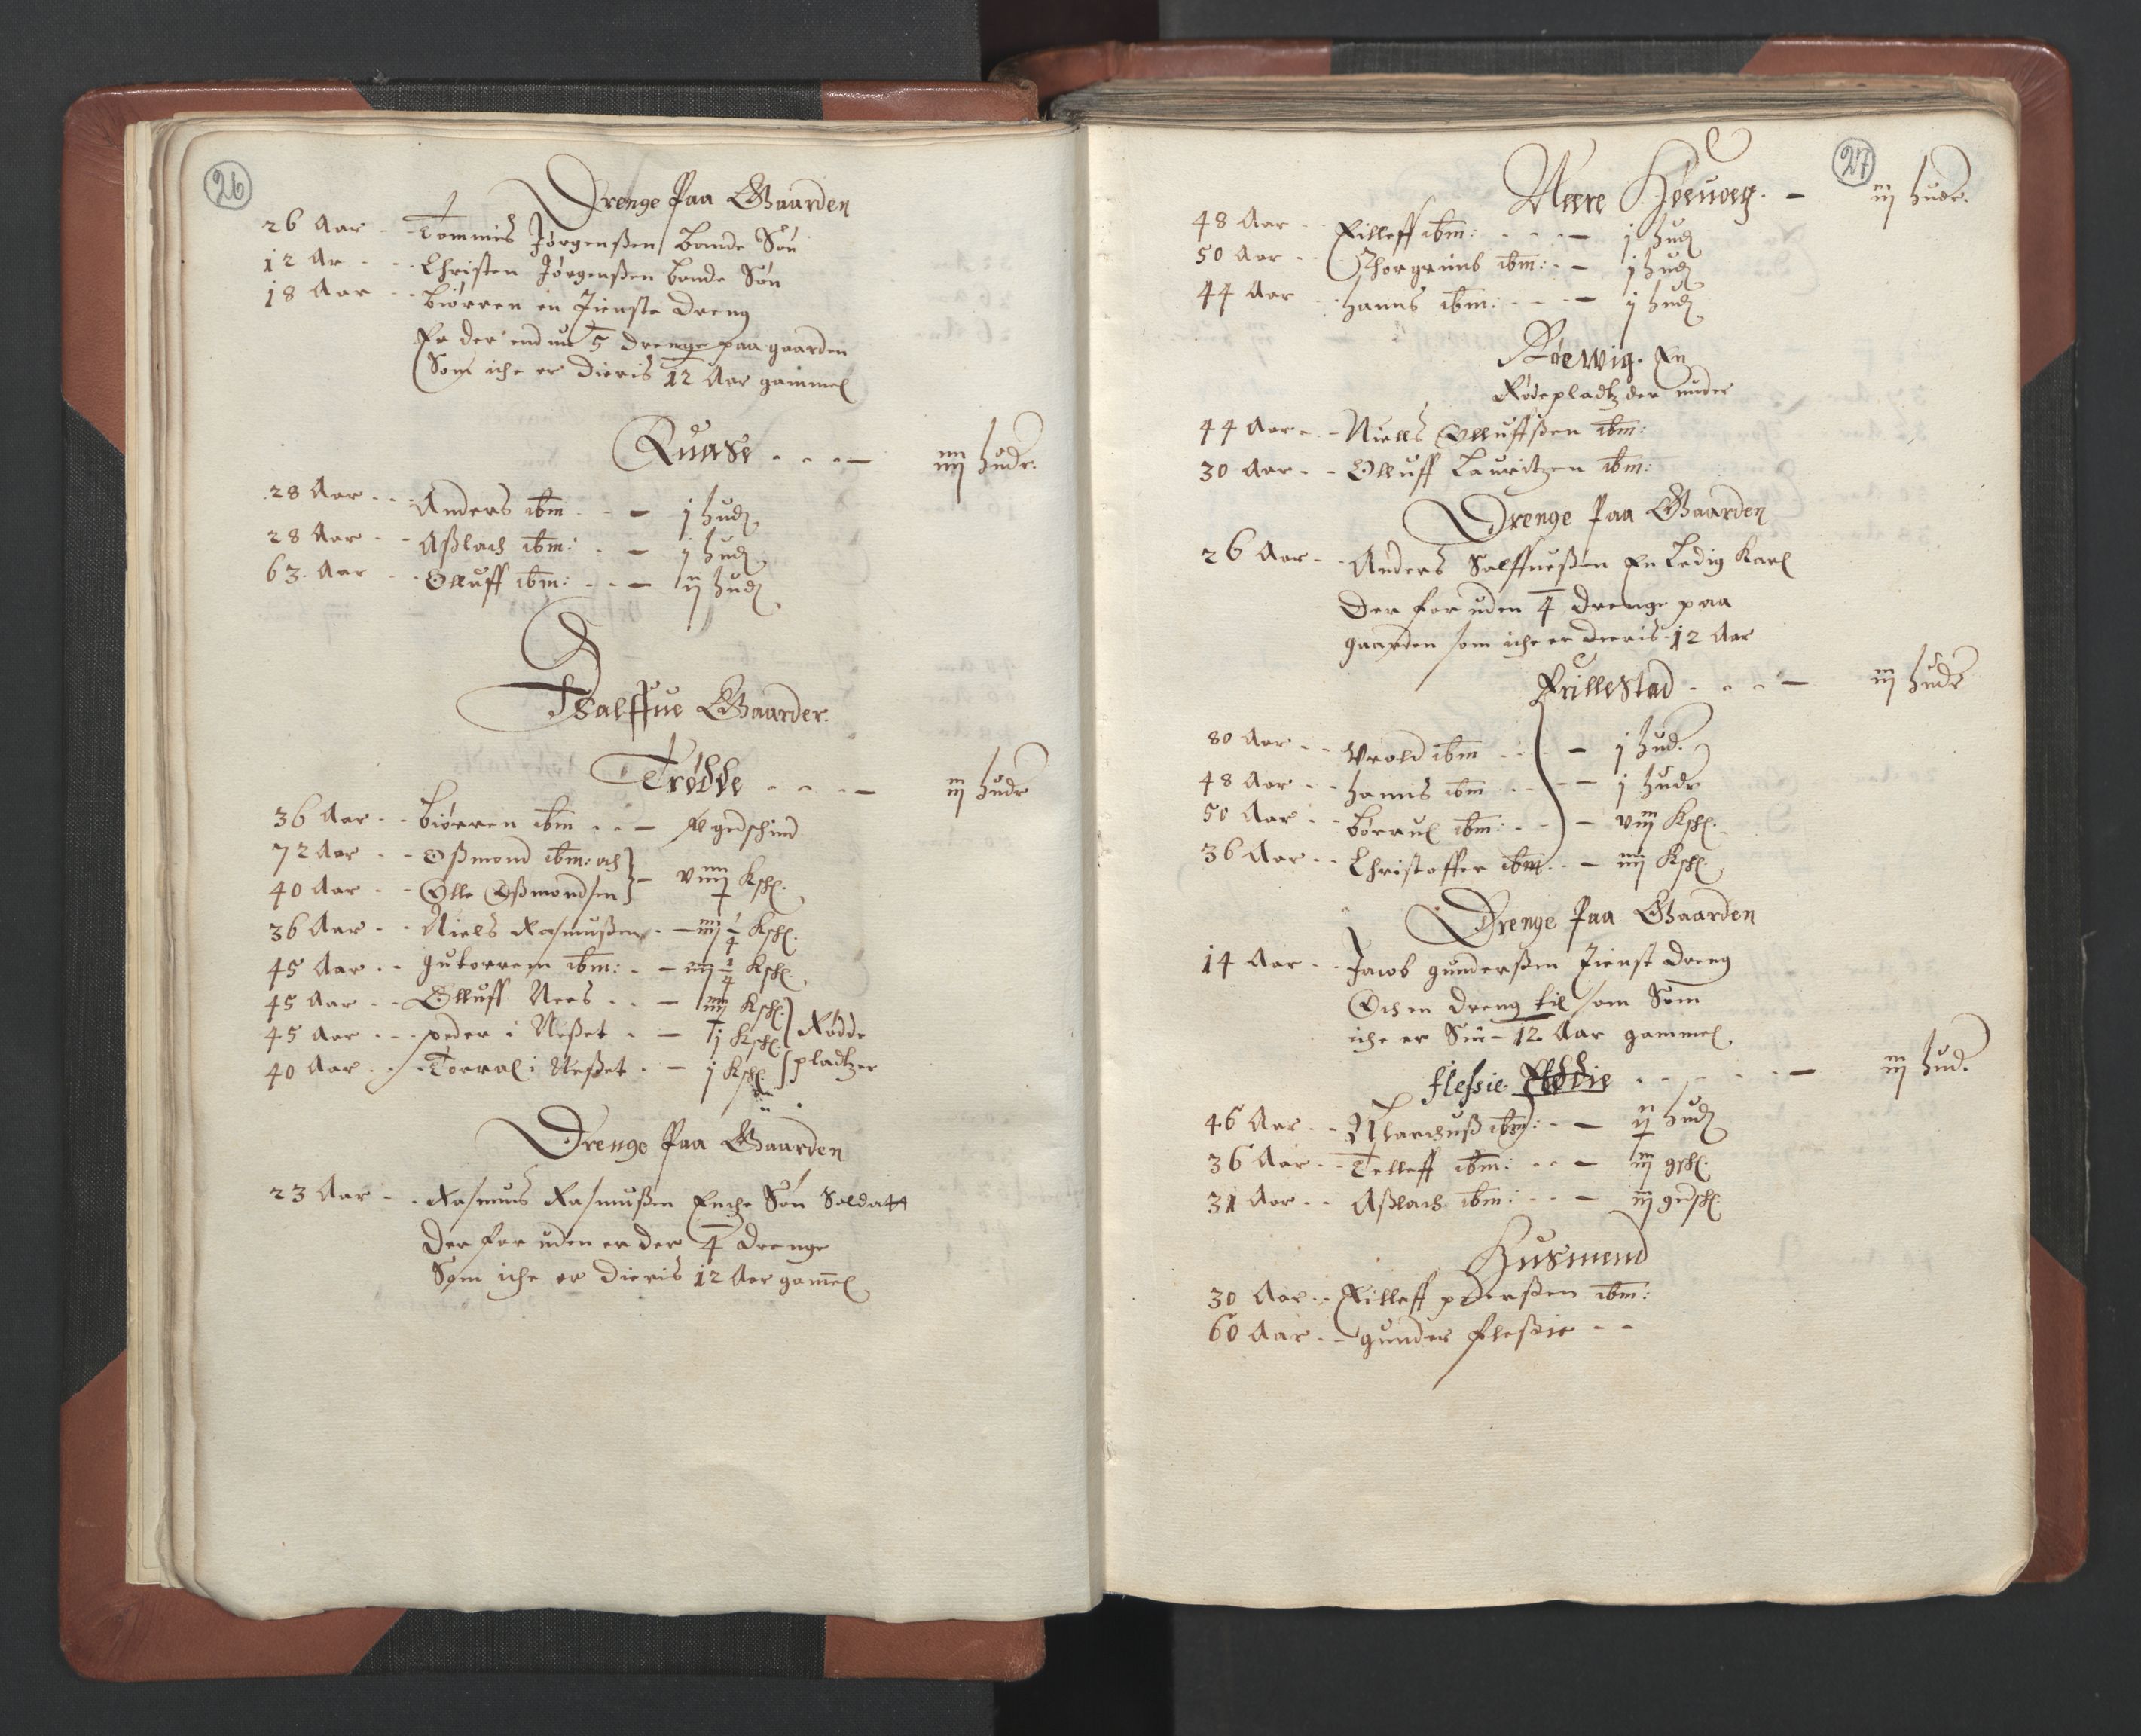 26
Drenge Paa Gaarden
26 Aar - Tommis Jørgenßen bonde Søn
12 Ar - Christen Jørgenßen bonde Søn
18 Aar - Biørren en Tienste dreng
Er der endnu 5 drenge paa gaarden
Som iche er dieris 12 Aar gammel
Quase - iiij hudr.
28 Aar - Anders ibm - j hud
28 Aar - Aßlach ibm: - j hud
63. Aar - Olluff ibm: - ij hud
Halffue Gaarder.
Trødde - iij hudr
36 Aar - Biørren ibm - gedschind
72 Aar - Oßmond ibm: och
40 Aar - Olle Oßmondsen - viiij Ksch.
36 Aar - Niels Rasmußen - iiij 1/4 Ksch.
45 Aar - gutorrem ibm: - iiij 1/4 Ksch.
45 Aar - Olluff Nees - iiij Ksch.
45 Aar - peder i Neßet - j Ksch. Rødde
40 Aar - Torral i Neßet - j Ksch. pladtzer
Drenge Paa Gaarden
23 Aar - Rasmus Rasmußen Enche Søn Soldatt
Der for uden er der 4 drenge
Som iche er dieris 12 Aar gamel
27
Neere - iij hudr.
48 Aar - Eilleff ibm: - j hud
50 Aar - Thorgrimb ibm: - j hud
44 Aar - hanns ibm: - j hud
Røewig. En
Rødepladtz der under
44 Aar - Niells Olluffßen ibm:
30 Aar - Olluff Lauritzen ibm:
Drenge Paa Gaarden
26 Aar - Anders Salffueßen En Ledig Karl
Der for uden 4 drenge paa
gaarden som iche er dieris 12 Aar
Frillestad - iij hudr
80 Aar - Wrold ibm - j hud.
48 Aar - hanns ibm - j hudr
50 Aar - Børruel ibm: - viij Ksch.
36 Aar - Christoffer ibm. - iiij Ksch.
Drenge Paa Gaarden
14 Aar - Jacob gunderßen Tienst dreng
Och en dreng til som Som
iche er Sin 12 Aar gammel
flessie - iij hud.
46 Aar - Marchuß ibm: - ij hud
36 Aar - Telleff ibm: - iij gsch.
31 Aar - Aßlach ibm: - iij gedsch.
Husmend
30 Aar - Eilleff pederßen ibm:
60 Aar - gunder fleßie